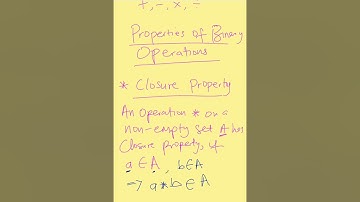 +, -, ×, ÷
Properties of Binary
Operations
* Closure Property
An Operation * on a
non-empty set A has
Closure Property, if
a ∈ A, b ∈ A
→ a * b ∈ A